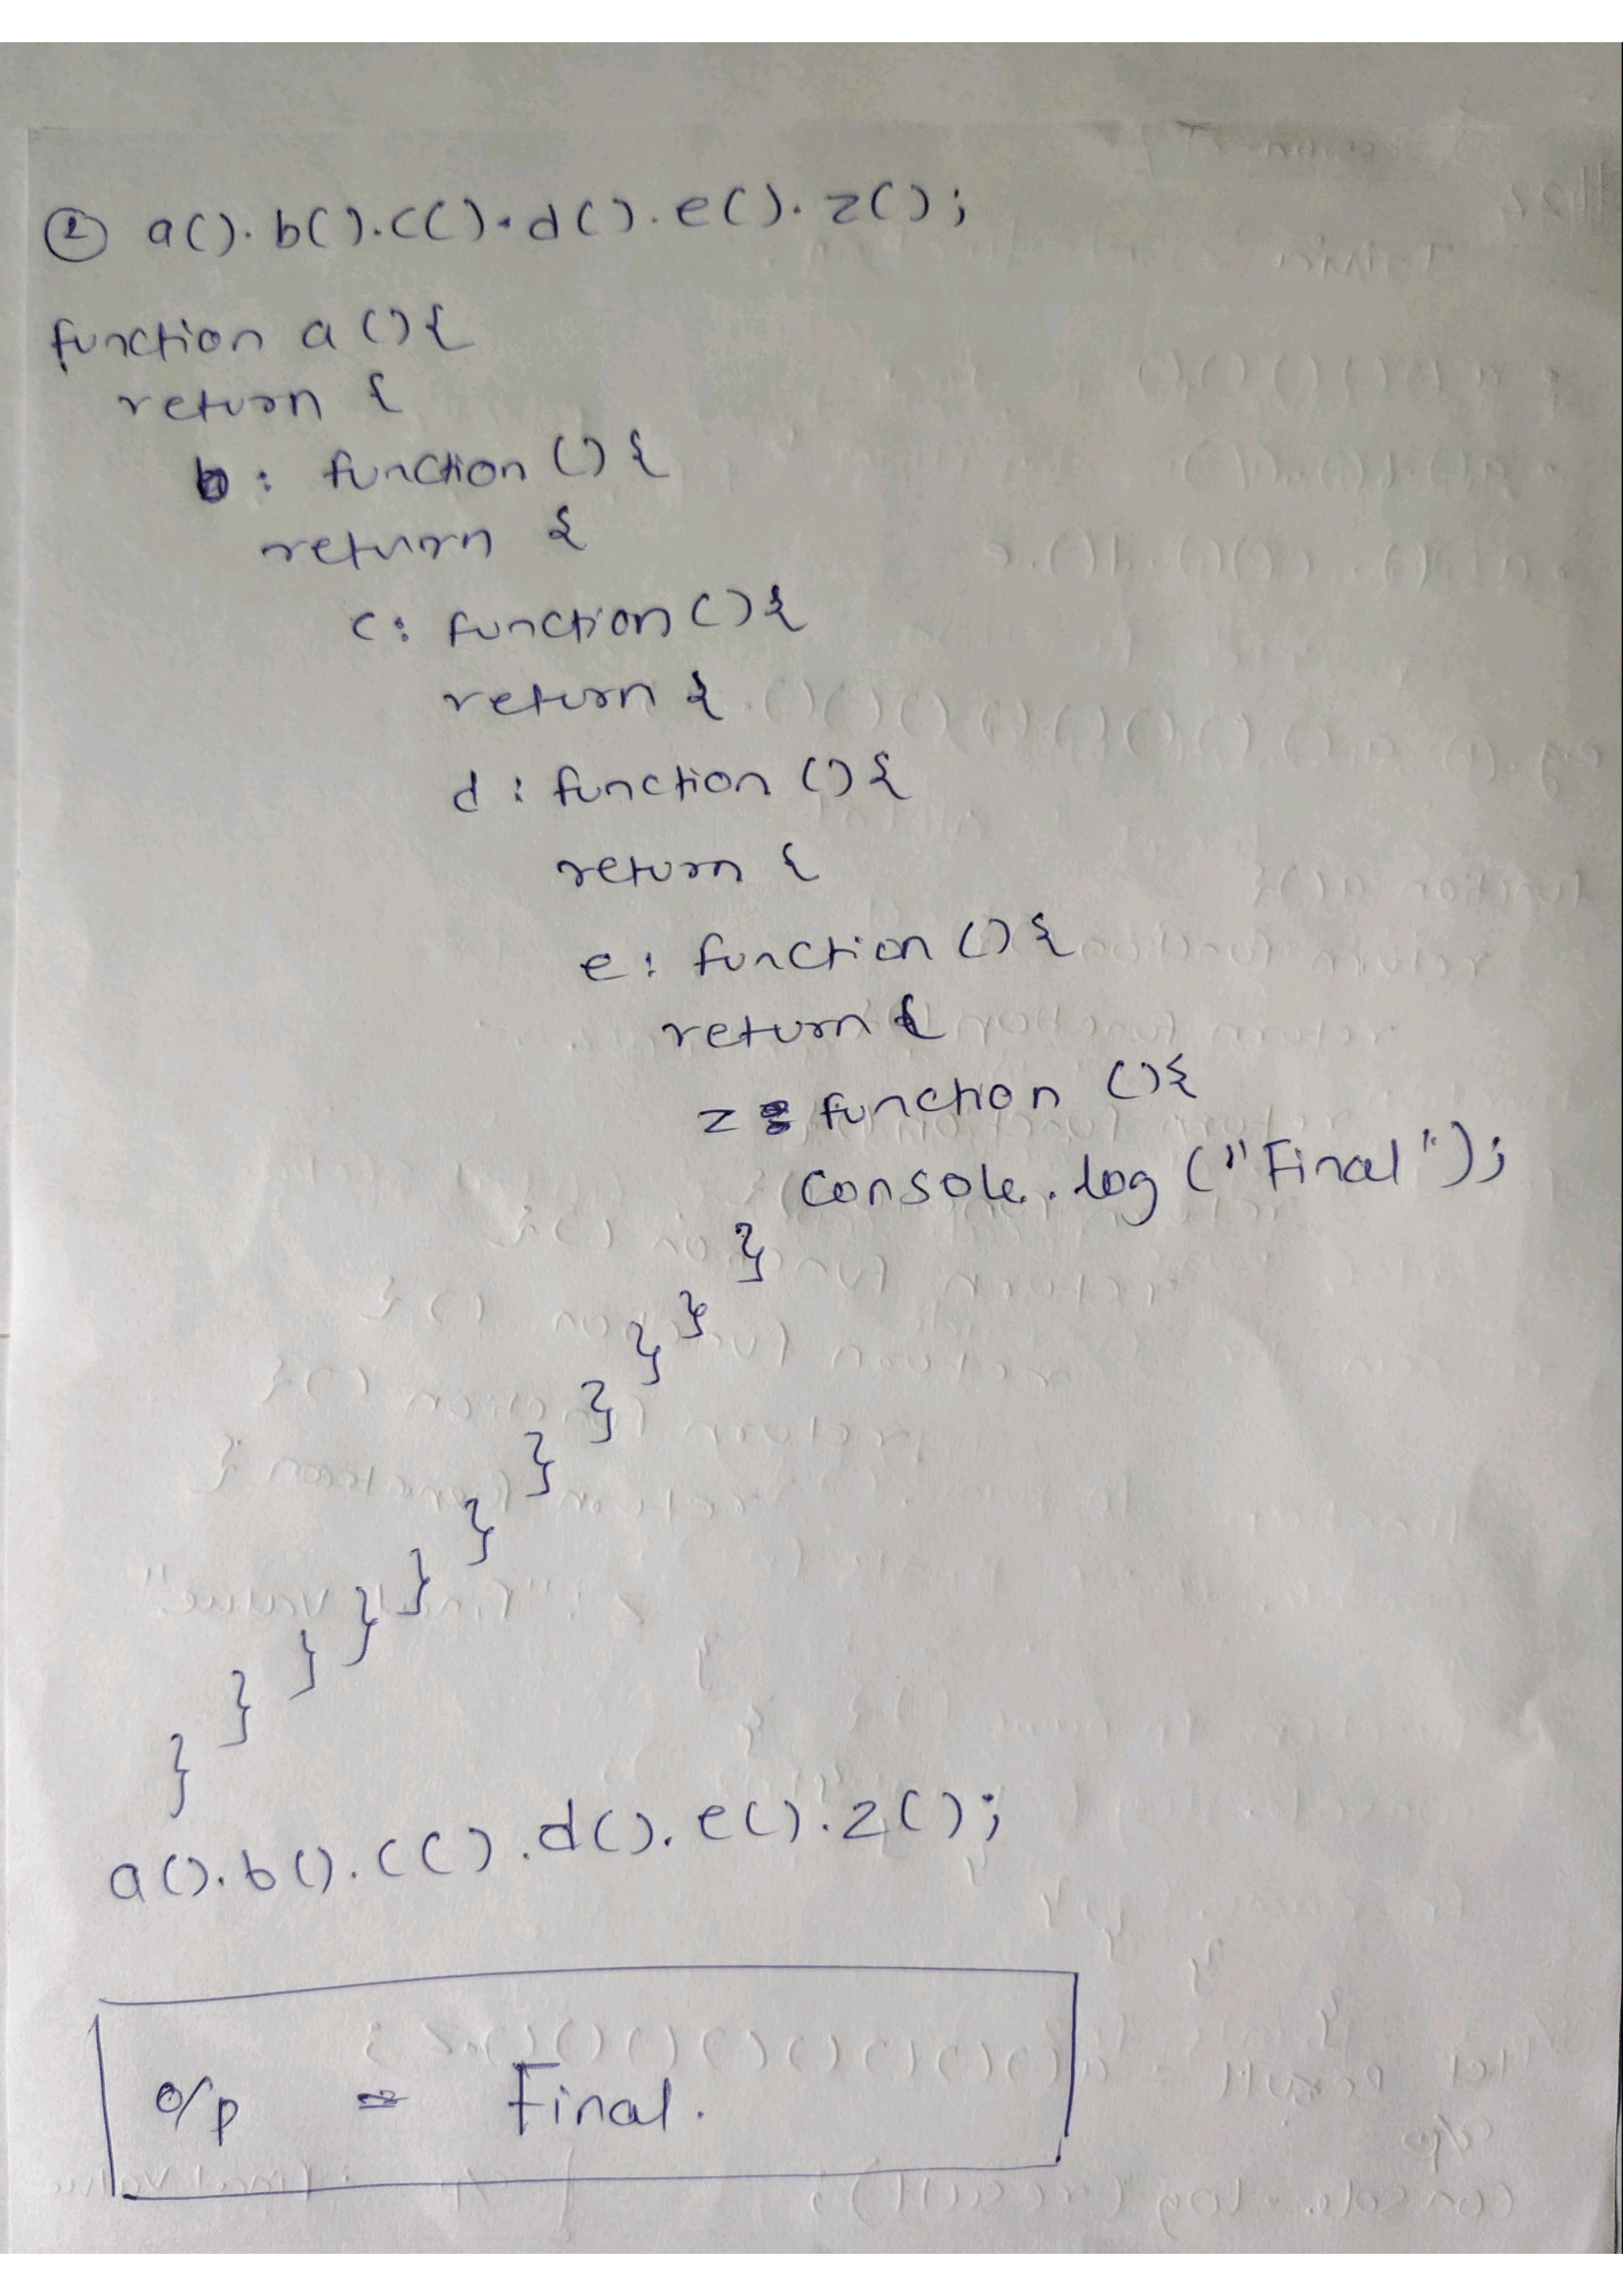 ② a().b().c().d().e().z();
function a(){
return {
b: function(){
return {
c: function(){
return {
d: function(){
return {
e: function(){
return {
z: function (){
console.log("Final");
}
}
}
}
}
}
}
}
}
}
}
a().b().c().d().e().z();
o/p = Final.